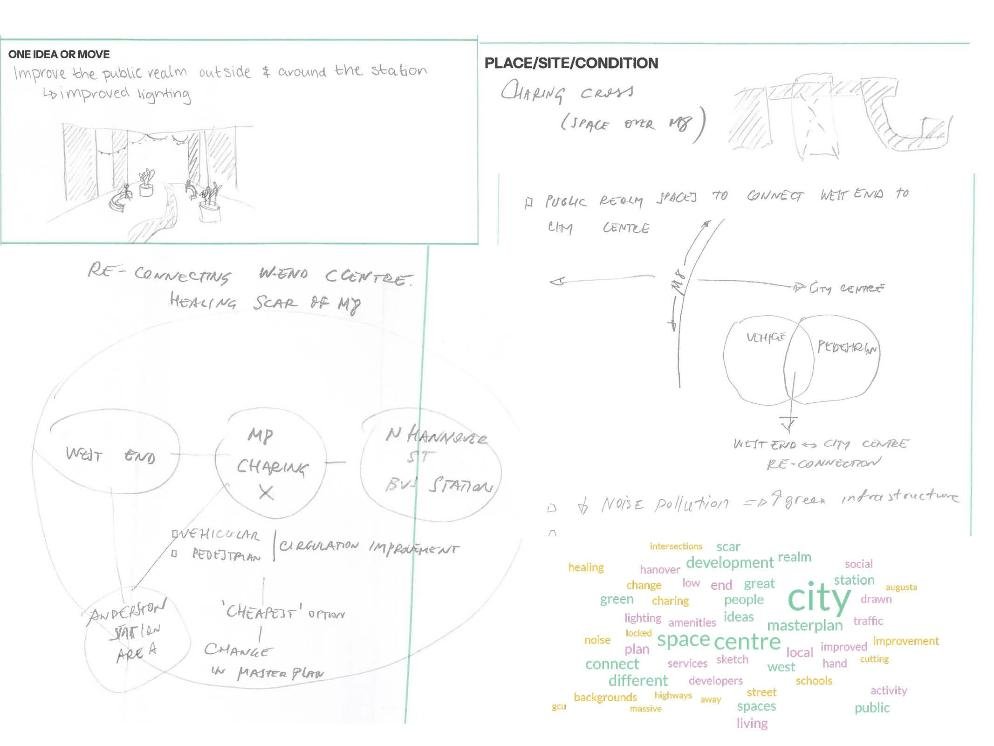 ONE IDEA OR MOVE
Improve the public realm outside & around the station
↳ improved lighting
PLACE/SITE/CONDITION
CHARING CROSS
(SPACE OVER M8)
PUBLIC REALM SPACES TO CONNECT WEST END TO
CITY CENTRE
M8
CITY CENTRE
VEHICLE
PEDESTRIAN
WEST END ↔ CITY CENTRE
RE-CONNECTION
↓ NOISE pollution => ↑ green infrastructure
RE-CONNECTING W-END C CENTRE.
HEALING SCAR OF M8
WEST END
MP
CHARING
X
N HANNOVER
ST
BUS STATION
VEHICULAR
PEDESTRIAN
CIRCULATION IMPROVEMENT
'CHEAPEST' OPTION
CHANGE
IN MASTER PLAN
ANDERSTON
STATION
AREA
intersections scar
healing hanover development realm social
change low end great station augusta
green charing people city drawn
lighting amenities ideas masterplan traffic
noise locked space centre local improved improvement
plan services sketch west hand cutting
connect different developers schools
backgrounds highways away street activity
gcu massive spaces public
living